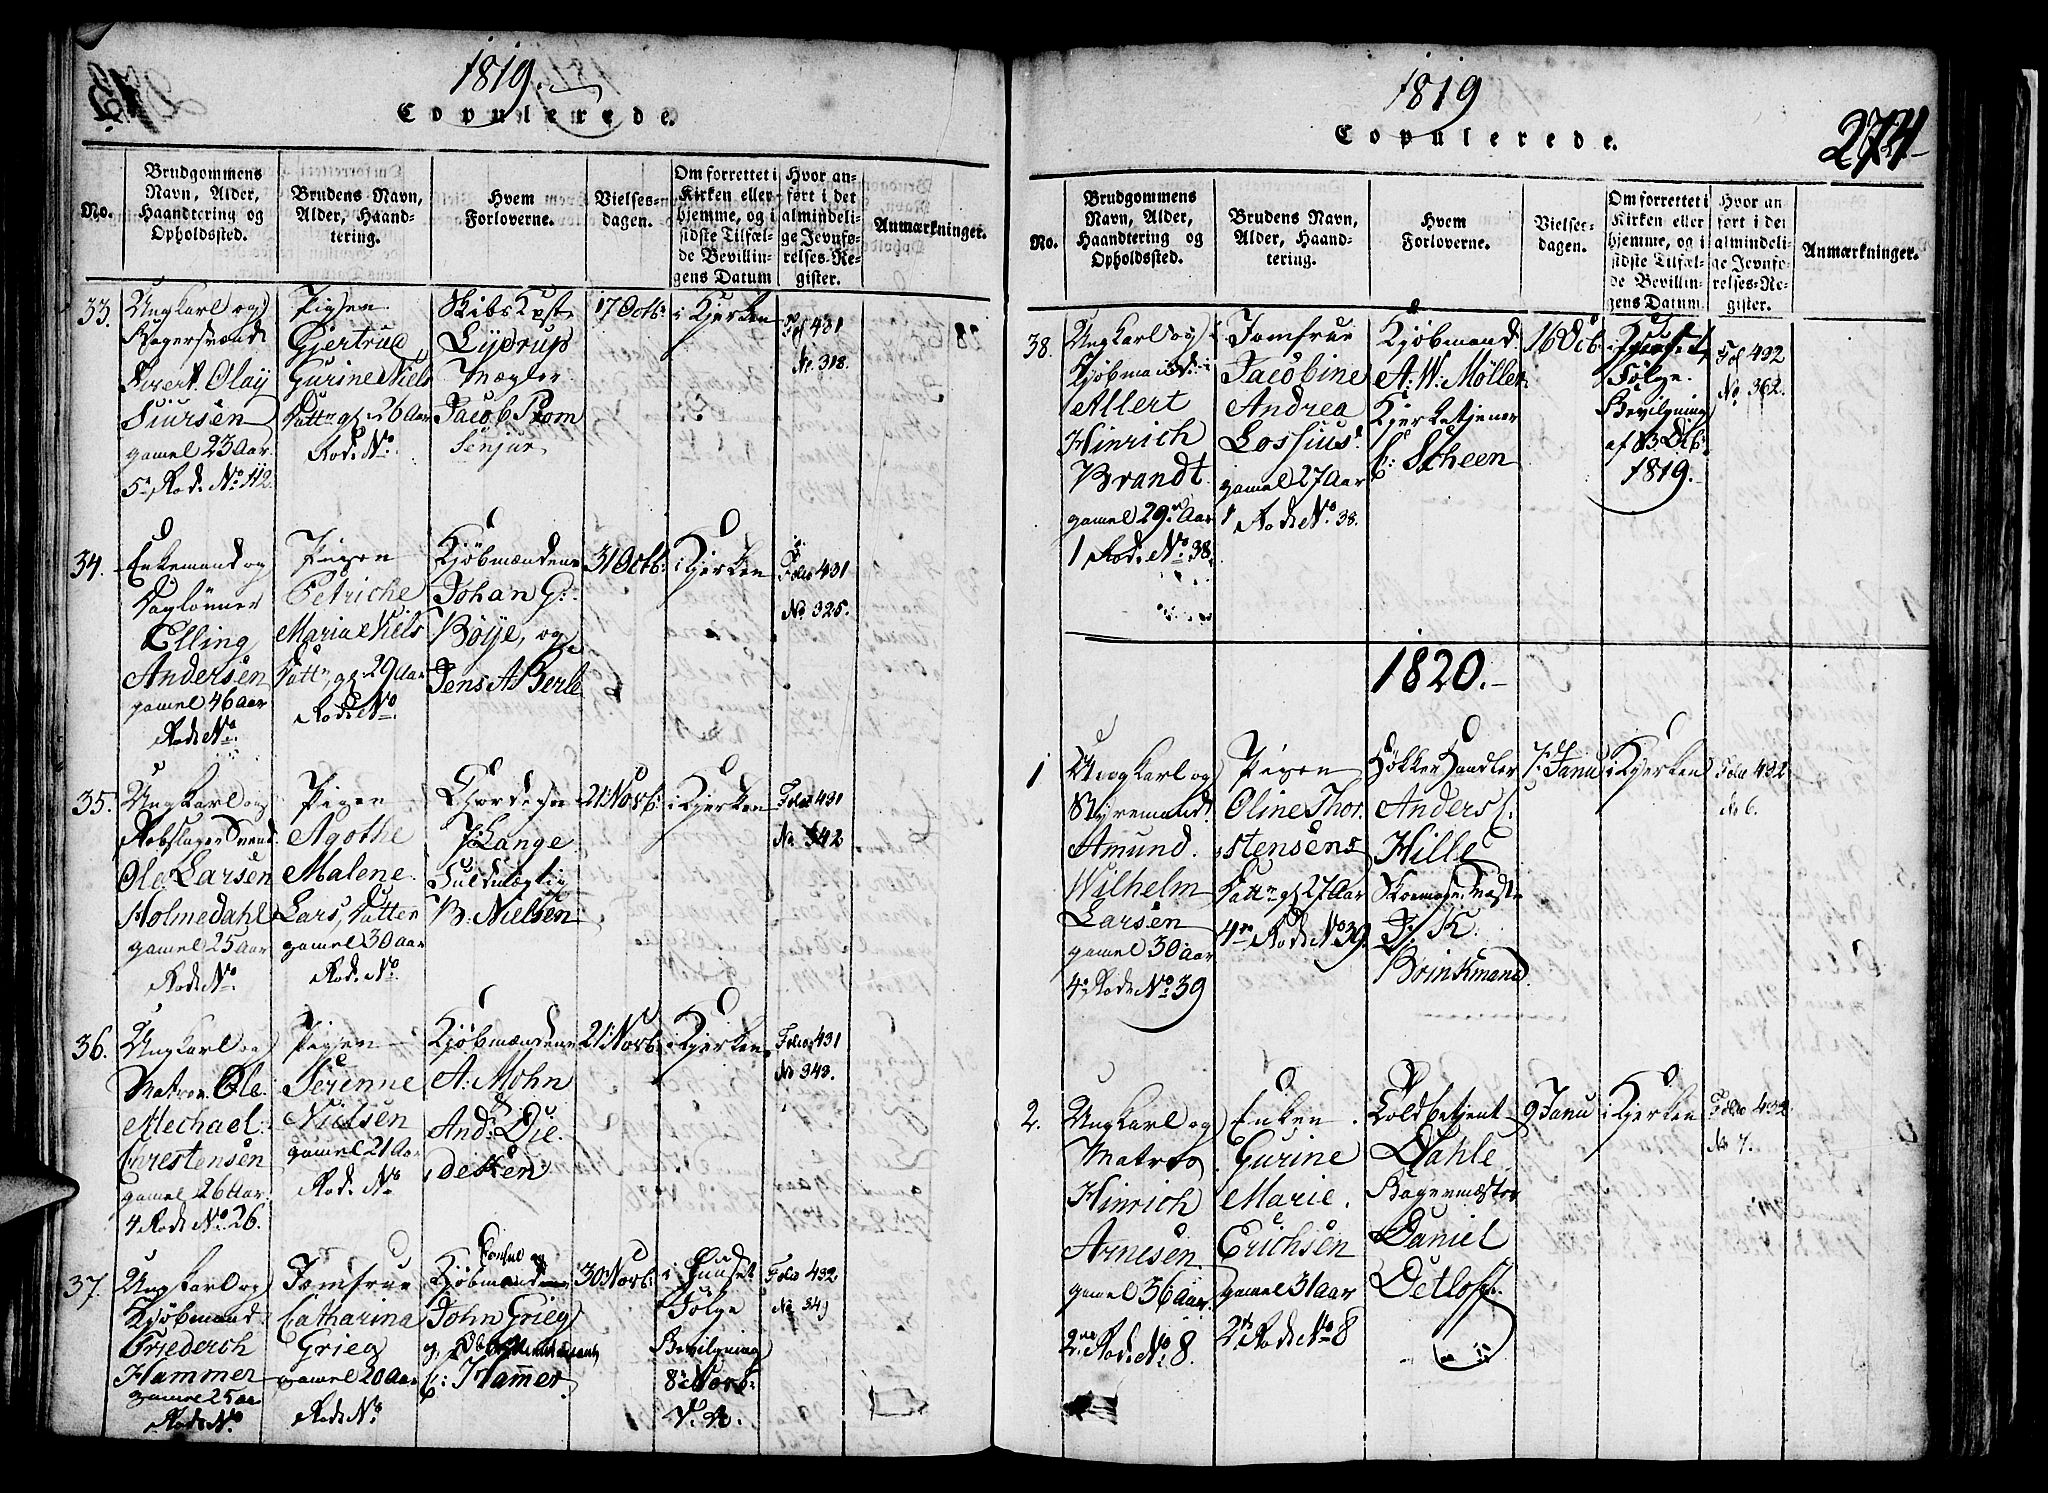 1819.
Copulerede.
No.
Brudgommens
Navn, Alder,
Haandtering og
Opholdssted.
Brudens Navn,
Alder, Haand-
tering.
Hvem
Forloverne.
Vielses-
dagen.
Om forrettet i
Kirken eller
hjemme, og i
sidste Tilfæl-
de Bevillin-
gens Datum
Hvor an-
ført i det
almindeli-
ge Jevnfø-
relses-Re-
gister.
Anmærkninger.
33.
Ungkarl og
Bagersvend
Sivert Olay
Siursen
gamel 23 Aar
5te Rode No 112.
Pigen
Gjertrud
Gurine Niels
Datter gl. 26 Aar
Rode No.
Skibs Cpst
Lydrup
Mægler
Jacob Prom
Senjur
17 Octb:
i Kjerken
Fol 431
No. 318.
34.
Enkemand og
Daglønner
Elling
Andersen
gamel 46 Aar
Rode No.
Pigen
Petriche
Maria Niels
Datter, gl. 29 Aar
Rode No.
Kjøbmændene
Johan G:
Böÿe, og
Jens A Berle
31 Octb:
i Kjerken
Folio 431
No 325.
35.
Ungkarl og
Rebslager Svend
Ole Larsen
Holmedahl
gamel 25 Aar
Rode No.
Pigen
Agothe
Malene
Lars, Datter
gamel 30 Aar
Rode No.
Lange
Fuldmægtig
B. Nielsen
21 Novb:
i Kjerken
Folio 431
No 342
36.
Ungkarl og
Matros Ole
Mechael
Chrestensen
gamel 26 Aar
4 Rode No 26.
Pigen
Serenne
Nielsen
gamel 21 Aar
Rode No
Kjøbmændene
A: Mohn
&
And: Die
desken
21 Novb:
i Kjerken
Folio 431
No 343.
37.
Ungkarl og
Kjøbmand
Friederch
Hammer
gamel 25 aar
Rode No
Jomfrue
Catharina
Grieg
gamel 20 Aar
Rode No.
Consul og
Kjøbmand
John Grieg
og
C: Hammer
30 Novb:
i Huuset
Følge
Bevilgning
8de Novb:
V. A.
Folio 432
No 349
1819
Copulerede.
274
No.
Brudgommens
Navn, Alder,
Haandtering og
Opholdssted.
Brudens Navn,
Alder, Haand-
tering.
Hvem
Forloverne.
Vielses-
dagen.
Om forrettet i
Kirken eller
hjemme, og i
sidste Tilfæl-
de Bevillin-
gens Datum.
Hvor an
ført i det
almindeli-
ge Jevnfø-
relses-Re-
gister.
Anmærkninger.
38.
Ungkarl og
Kjøbmand
Allert
Hinrich
Brandt
gamel 29 Aar
1 Rode No. 38.
Jomfrue
Jacobine
Andrea
Lossius
gamel 27 Aar
1 Rode No. 38.
Kjøbmand
A: W: Møller
Kjerketjener
C: Scheen
16 Dcb:
i Huuset
Følge
Bevilgning
af 13 Dcb:
1819.
Fol 432
No 362.
1820.
1
Ungkarl og
Styremand
Amund
Wilhelm
Larsen
gamel 30 aar
4 Rode No 39
Pigen
Oline Thor.
stensens
Datter gl 27 Aar
4de Rode No 39.
Høkker Handler
Anders C:
Hille
Skomager Mester
J: K.
Brinkmand.
7 Janu
i Kjerken
Folio 432
No 6.
2.
Ungkarl og
Matros
Hinrich
Arnesen
gamel 36 aar
2den Rode No. 8.
Enken
Gurine
Marie
Erichsen
gamel 31 aar
2de Rode No 8
Toldbetjent
Dahle
Bagermester
Daniel
Detloff.
9 Janu
i Kjerken
Folio 432
No 7.